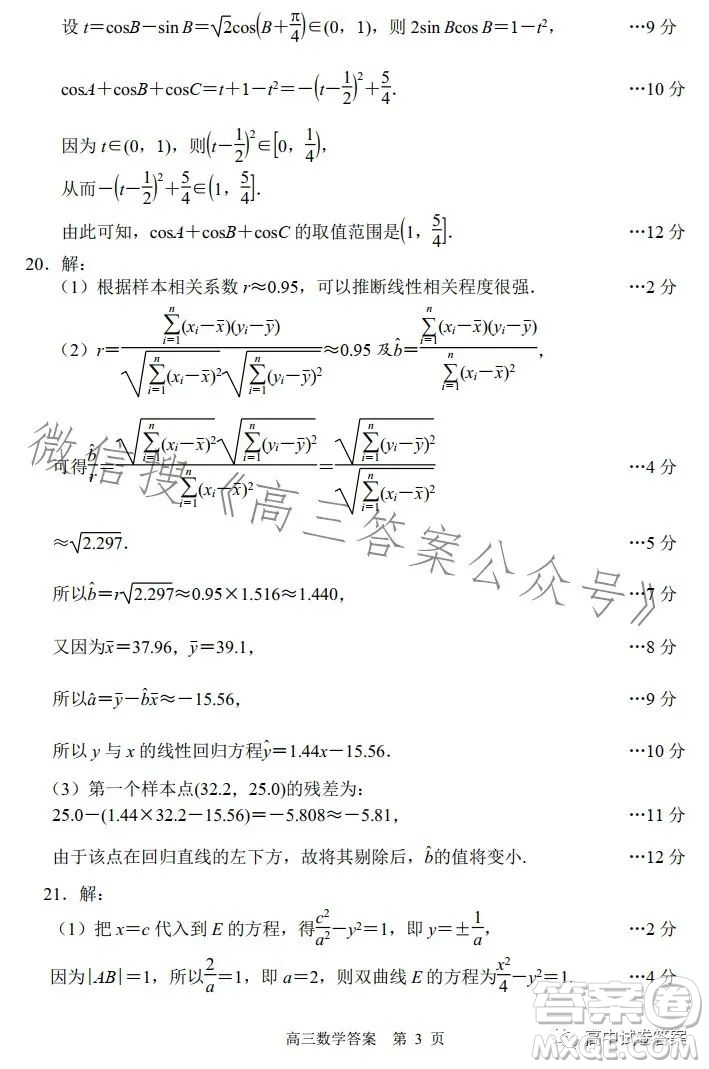 设 t＝cosB－sin B＝√2cos(B＋π/4)∈(0，1)，则 2sin Bcos B＝1－t²， …9 分
cosA＋cosB＋cosC＝t＋1－t²＝－(t－1/2)²＋5/4． …10 分
因为 t∈(0，1)，则(t－1/2)²∈[0，1/4)，
从而－(t－1/2)²＋5/4∈(1，5/4]．
由此可知，cosA＋cosB＋cosC 的取值范围是(1，5/4]． …12 分
20．解：
（1）根据样本相关系数 r≈0.95，可以推断线性相关程度很强． …2 分
（2）r＝∑ⁿᵢ₌₁(xᵢ－x̄)(yᵢ－ȳ)/(√(∑ⁿᵢ₌₁(xᵢ－x̄)²)√(∑ⁿᵢ₌₁(yᵢ－ȳ)²))≈0.95 及b̂＝∑ⁿᵢ₌₁(xᵢ－x̄)(yᵢ－ȳ)/∑ⁿᵢ₌₁(xᵢ－x̄)²，
可得b̂/r＝√(∑ⁿᵢ₌₁(xᵢ－x̄)²)√(∑ⁿᵢ₌₁(yᵢ－ȳ)²)/∑ⁿᵢ₌₁(xᵢ－x̄)²＝√(∑ⁿᵢ₌₁(yᵢ－ȳ)²)/√(∑ⁿᵢ₌₁(xᵢ－x̄)²) …4 分
≈√2.297． …5 分
所以b̂＝r√2.297≈0.95×1.516≈1.440， …7 分
又因为x̄＝37.96，ȳ＝39.1， …8 分
所以â＝ȳ－b̂x̄≈－15.56， …9 分
所以 y 与 x 的线性回归方程ŷ＝1.44x－15.56． …10 分
（3）第一个样本点(32.2，25.0)的残差为：
25.0－(1.44×32.2－15.56)＝－5.808≈－5.81， …11 分
由于该点在回归直线的左下方，故将其剔除后，b̂的值将变小． …12 分
21．解：
（1）把 x＝c 代入到 E 的方程，得c²/a²－y²＝1，即 y＝±1/a， …2 分
因为|AB|＝1，所以2/a＝1，即 a＝2，则双曲线 E 的方程为x²/4－y²＝1. …4 分
高三数学答案 第 3 页
微信搜《高三答案公众号》
高中试卷答案
答案圈
MXQE.COM